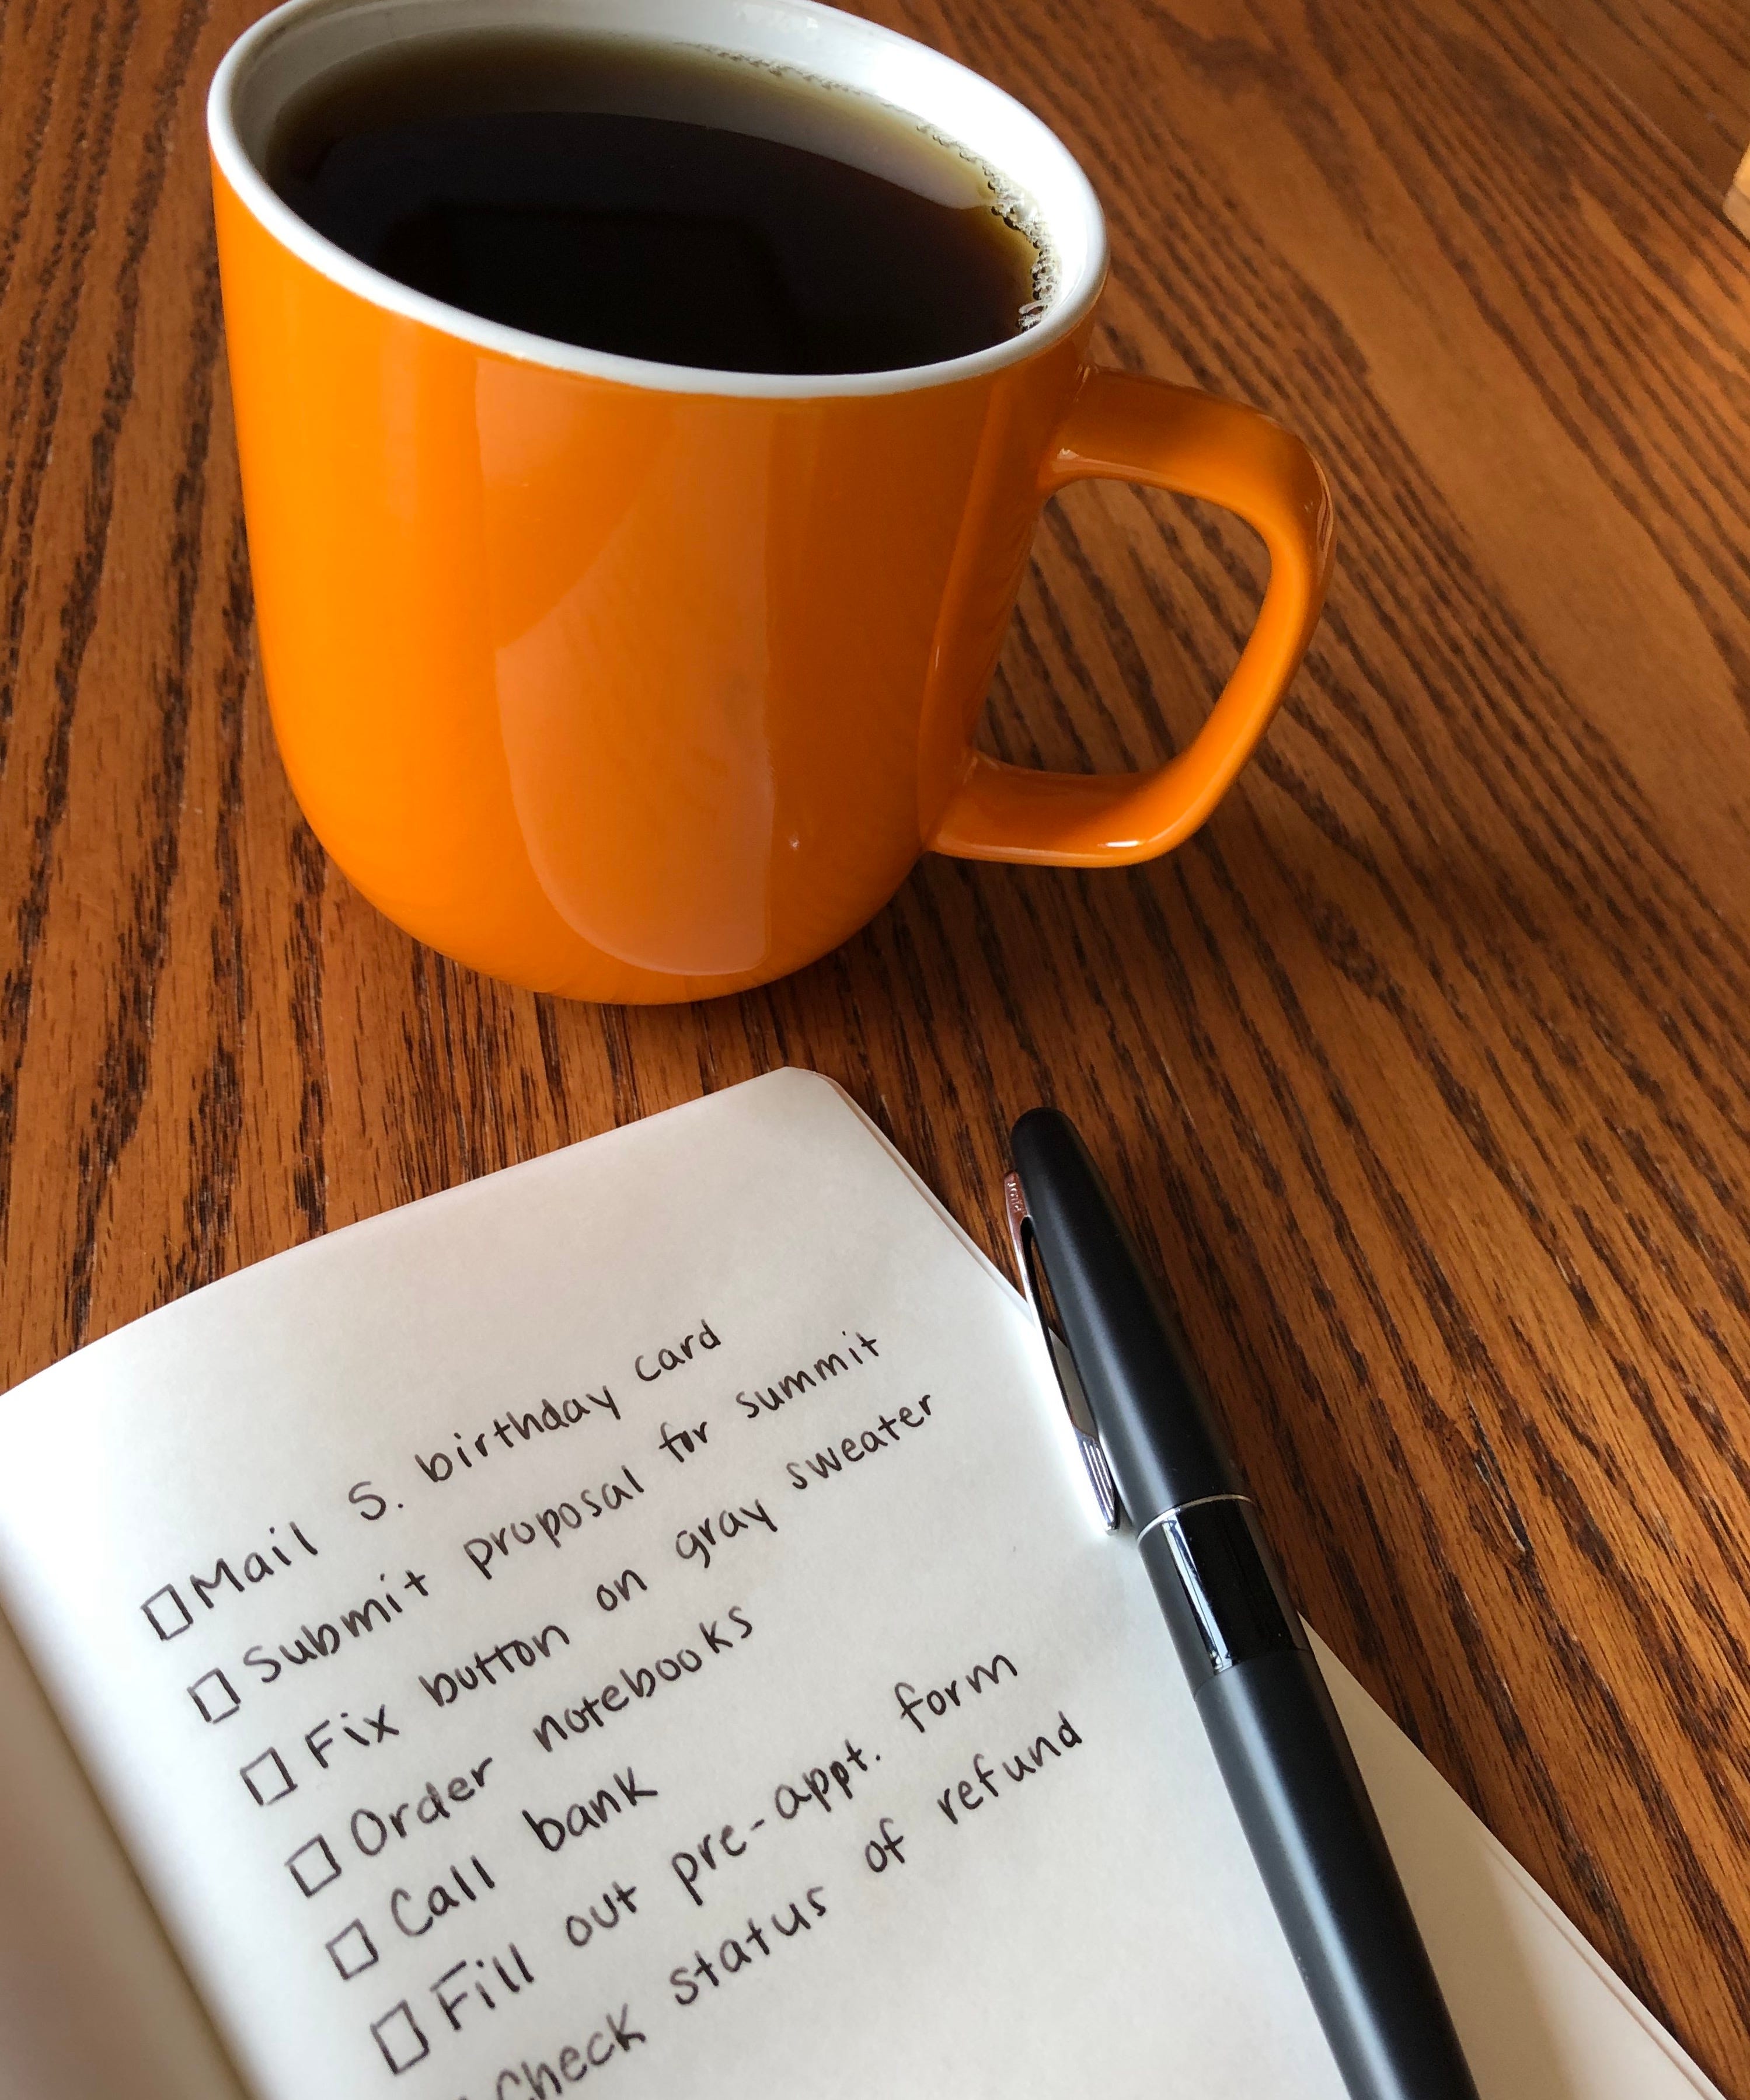 Mail S. birthday card
Submit proposal for summit
Fix button on gray sweater
Order notebooks
Call bank
Fill out pre-appt. form
Check status of refund